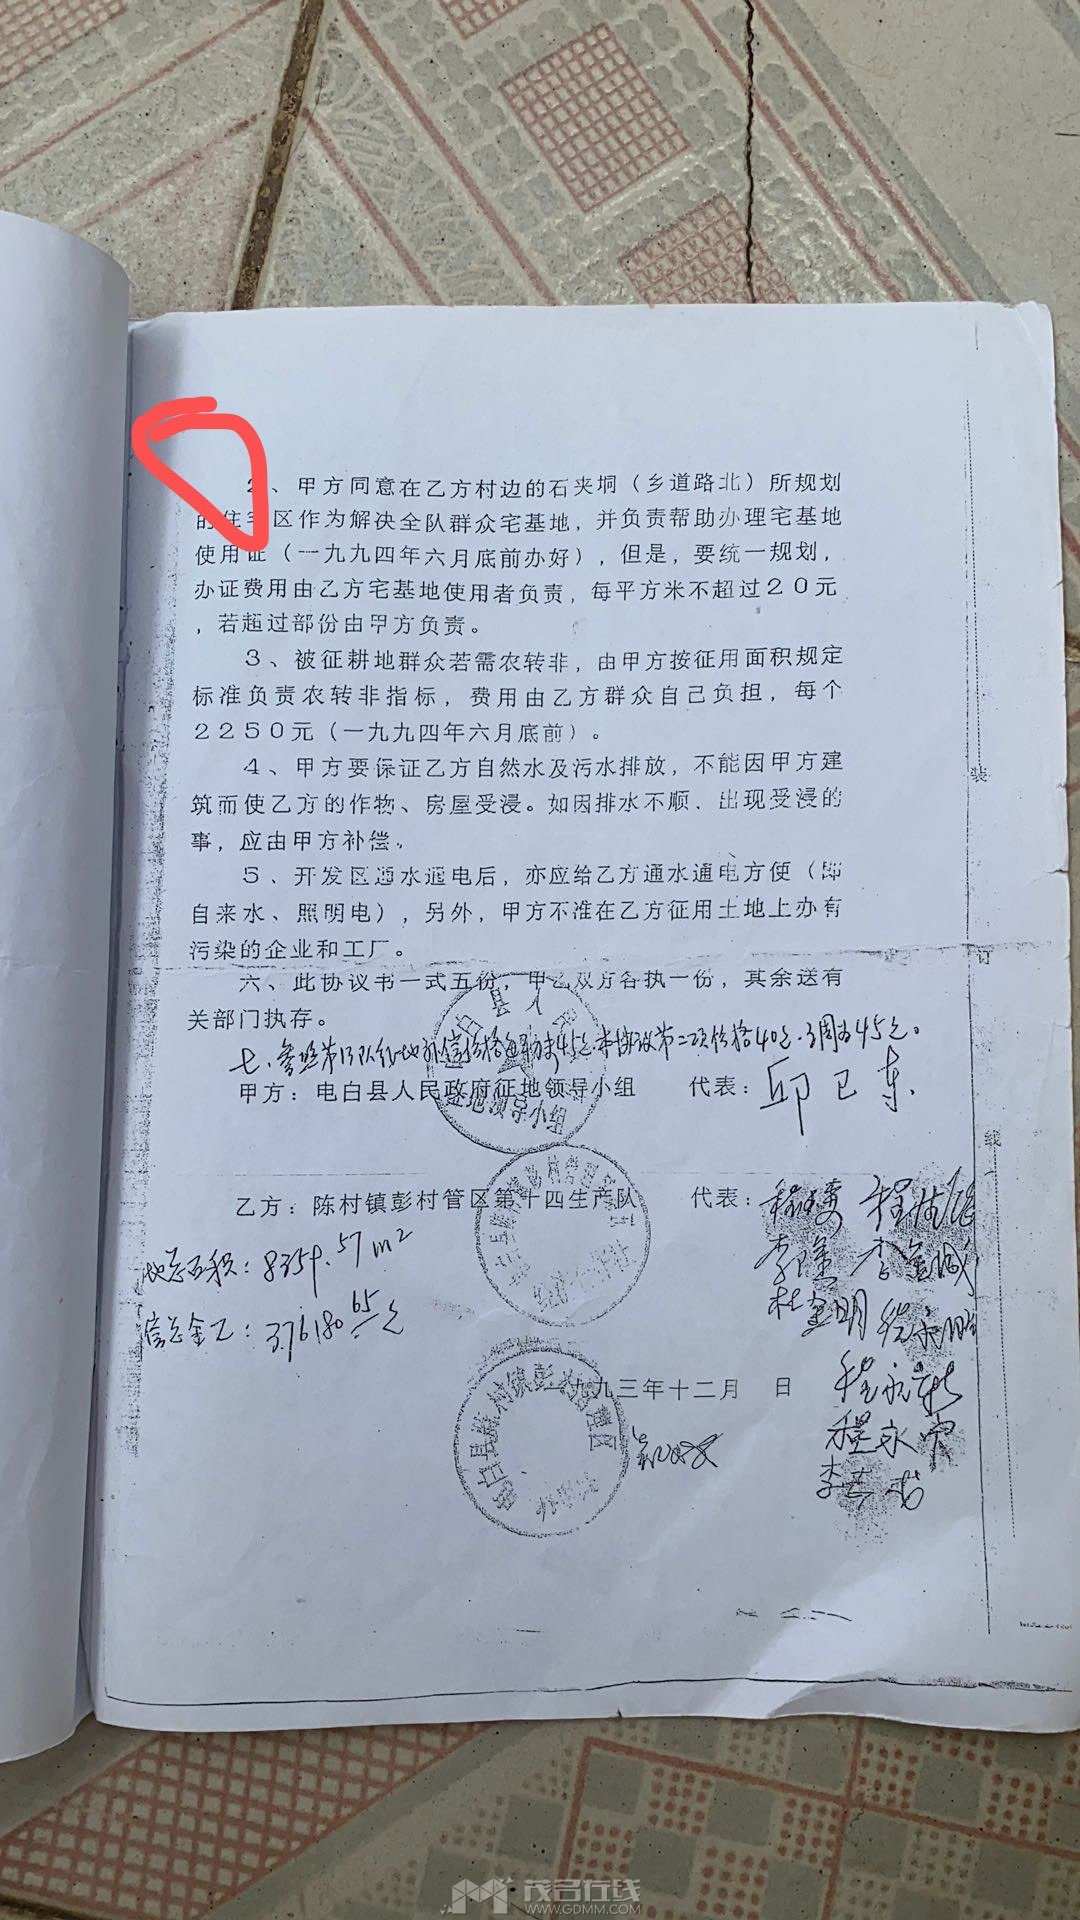 2、甲方同意在乙方村边的石夹垌（乡道路北）所规划
的住宅区作为解决全队群众宅基地，并负责帮助办理宅基地
使用证（一九九四年六月底前办好），但是，要统一规划，
办证费用由乙方宅基地使用者负责，每平方米不超过20元
，若超过部份由甲方负责。
3、被征耕地群众若需农转非，由甲方按征用面积规定
标准负责农转非指标，费用由乙方群众自己负担，每个
2250元（一九九四年六月底前）。
4、甲方要保证乙方自然水及污水排放，不能因甲方建
筑而使乙方的作物、房屋受浸。如因排水不顺、出现受浸的
事，应由甲方补偿。
5、开发区通水通电后，亦应给乙方通水通电方便（即
自来水、照明电），另外，甲方不准在乙方征用土地上办有
污染的企业和工厂。
六、此协议书一式五份，甲乙双方各执一份，其余送有
关部门执存。
七、参照第13队征地补偿价格 45元 本协议第二项价格40元 调为45元。
甲方：电白县人民政府征地领导小组 代表：邱已东
征地领导小组
乙方：陈村镇彭村管区第十四生产队 代表：
地总面积：8359.57m²
李金城
杜金明
偿总金额：376180.65元
一九九三年十二月 日
程永新
程永
电白县陈村镇彭村管区
装
订
线
茂名在线
WWW.GDMM.COM